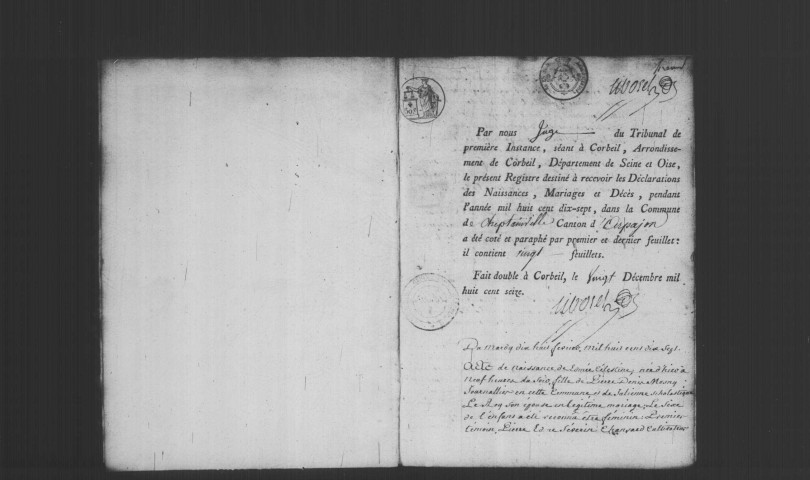 Par nous Juge du Tribunal de
première Instance, séant à Corbeil, Arrondisse-
ment de Corbeil, Département de Seine et Oise,
le présent Registre destiné à recevoir les Déclarations
des Naissances, Mariages et Décès, pendant
l'année mil huit cent dix-sept, dans la Commune
de Cheptainville Canton d'Arpajon
a été coté et paraphé par premier et dernier feuillet:
il contient vingt feuillets.
Fait double à Corbeil, le vingt Décembre mil
huit cent seize.
Du mardy dix huit février mil huit cent dix sept
Acte de naissance de Louise Célestine, née d'hier à
neuf heures du soir, fille de Pierre Denis
Journallier en cette Commune et de Julienne Scholastique
Le Roy son épouse en légitime mariage; Le Sexe
de l'enfant a été reconnu être féminin: Premier
témoin, Pierre Séverin Cultivateur